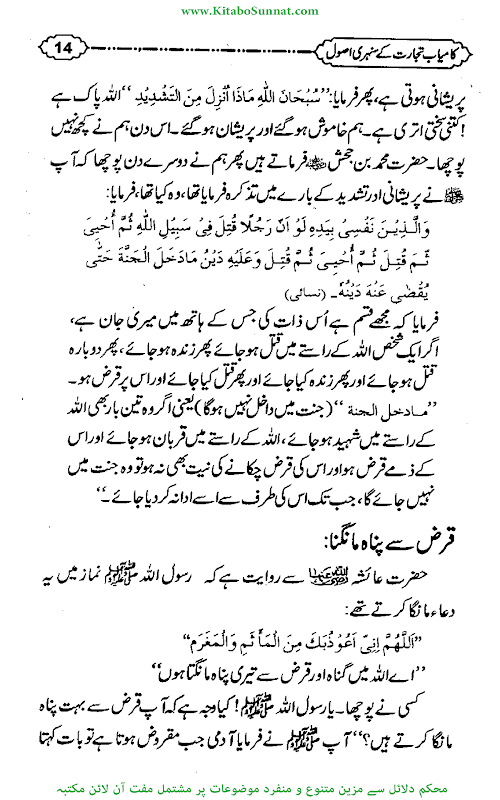 www.KitaboSunnat.com
کامیاب تجارت کے سنہری اصول
14
پریشانی ہوتی ہے، پھر فرمایا: ’’سُبْحَانَ اللّٰهِ مَاذَا اُنْزِلَ مِنَ التَّشْدِيْدِ‘‘ اللہ پاک ہے
! کتنی سختی اتری ہے۔ ہم خاموش ہوگئے اور پریشان ہوگئے۔ اس دن ہم نے کچھ نہیں
پوچھا۔ حضرت محمد بن جحش رضی اللہ عنہ فرماتے ہیں پھر ہم نے دوسرے دن پوچھا کہ آپ
ﷺ نے پریشانی اور تشدید کے بارے میں تذکرہ فرمایا تھا، وہ کیا تھا، فرمایا:
وَالَّذِيْنَ نَفْسِىْ بِيَدِهٖ لَوْ اَنَّ رَجُلًا قُتِلَ فِىْ سَبِيْلِ اللّٰهِ ثُمَّ أُحْيِىَ
ثُمَّ قُتِلَ ثُمَّ أُحْيِىَ ثُمَّ قُتِلَ وَعَلَيْهِ دَيْنٌ مَادَخَلَ الْجَنَّةَ حَتّٰى
يُقْضٰى عَنْهُ دَيْنُهٗ۔ (نسائی)
فرمایا کہ مجھے قسم ہے اُس ذات کی جس کے ہاتھ میں میری جان ہے،
اگر ایک شخص اللہ کے راستے میں قتل ہو جائے پھر زندہ ہو جائے، پھر دوبارہ
قتل ہو جائے اور پھر زندہ کیا جائے اور پھر قتل کیا جائے اور اس پر قرض ہو۔
’’مادخل الجنة‘‘ (جنت میں داخل نہیں ہوگا) یعنی اگر وہ تین بار بھی اللہ
کے راستے میں شہید ہو جائے، اللہ کے راستے میں قربان ہو جائے اور اس
کے ذمے قرض ہو اور اس کی قرض چکانے کی نیت بھی نہ ہو تو وہ جنت میں
نہیں جائے گا، جب تک اس کی طرف سے اسے ادا نہ کر دیا جائے۔‘‘
قرض سے پناہ مانگنا:
حضرت عائشہ رضی اللہ عنہا سے روایت ہے کہ رسول اللہ ﷺ نماز میں یہ
دعاء مانگا کرتے تھے:
’’اَللّٰهُمَّ اِنِّىْ اَعُوْذُبِكَ مِنَ الْمَأْثَمِ وَالْمَغْرَمِ‘‘
’’اے اللہ میں گناہ اور قرض سے تیری پناہ مانگتا ہوں‘‘
کسی نے پوچھا۔ یا رسول اللہ ﷺ! کیا وجہ ہے کہ آپ قرض سے بہت پناہ
مانگا کرتے ہیں؟‘‘ آپ ﷺ نے فرمایا آدمی جب مقروض ہوتا ہے تو بات کہتا
محکم دلائل سے مزین متنوع و منفرد موضوعات پر مشتمل مفت آن لائن مکتبہ